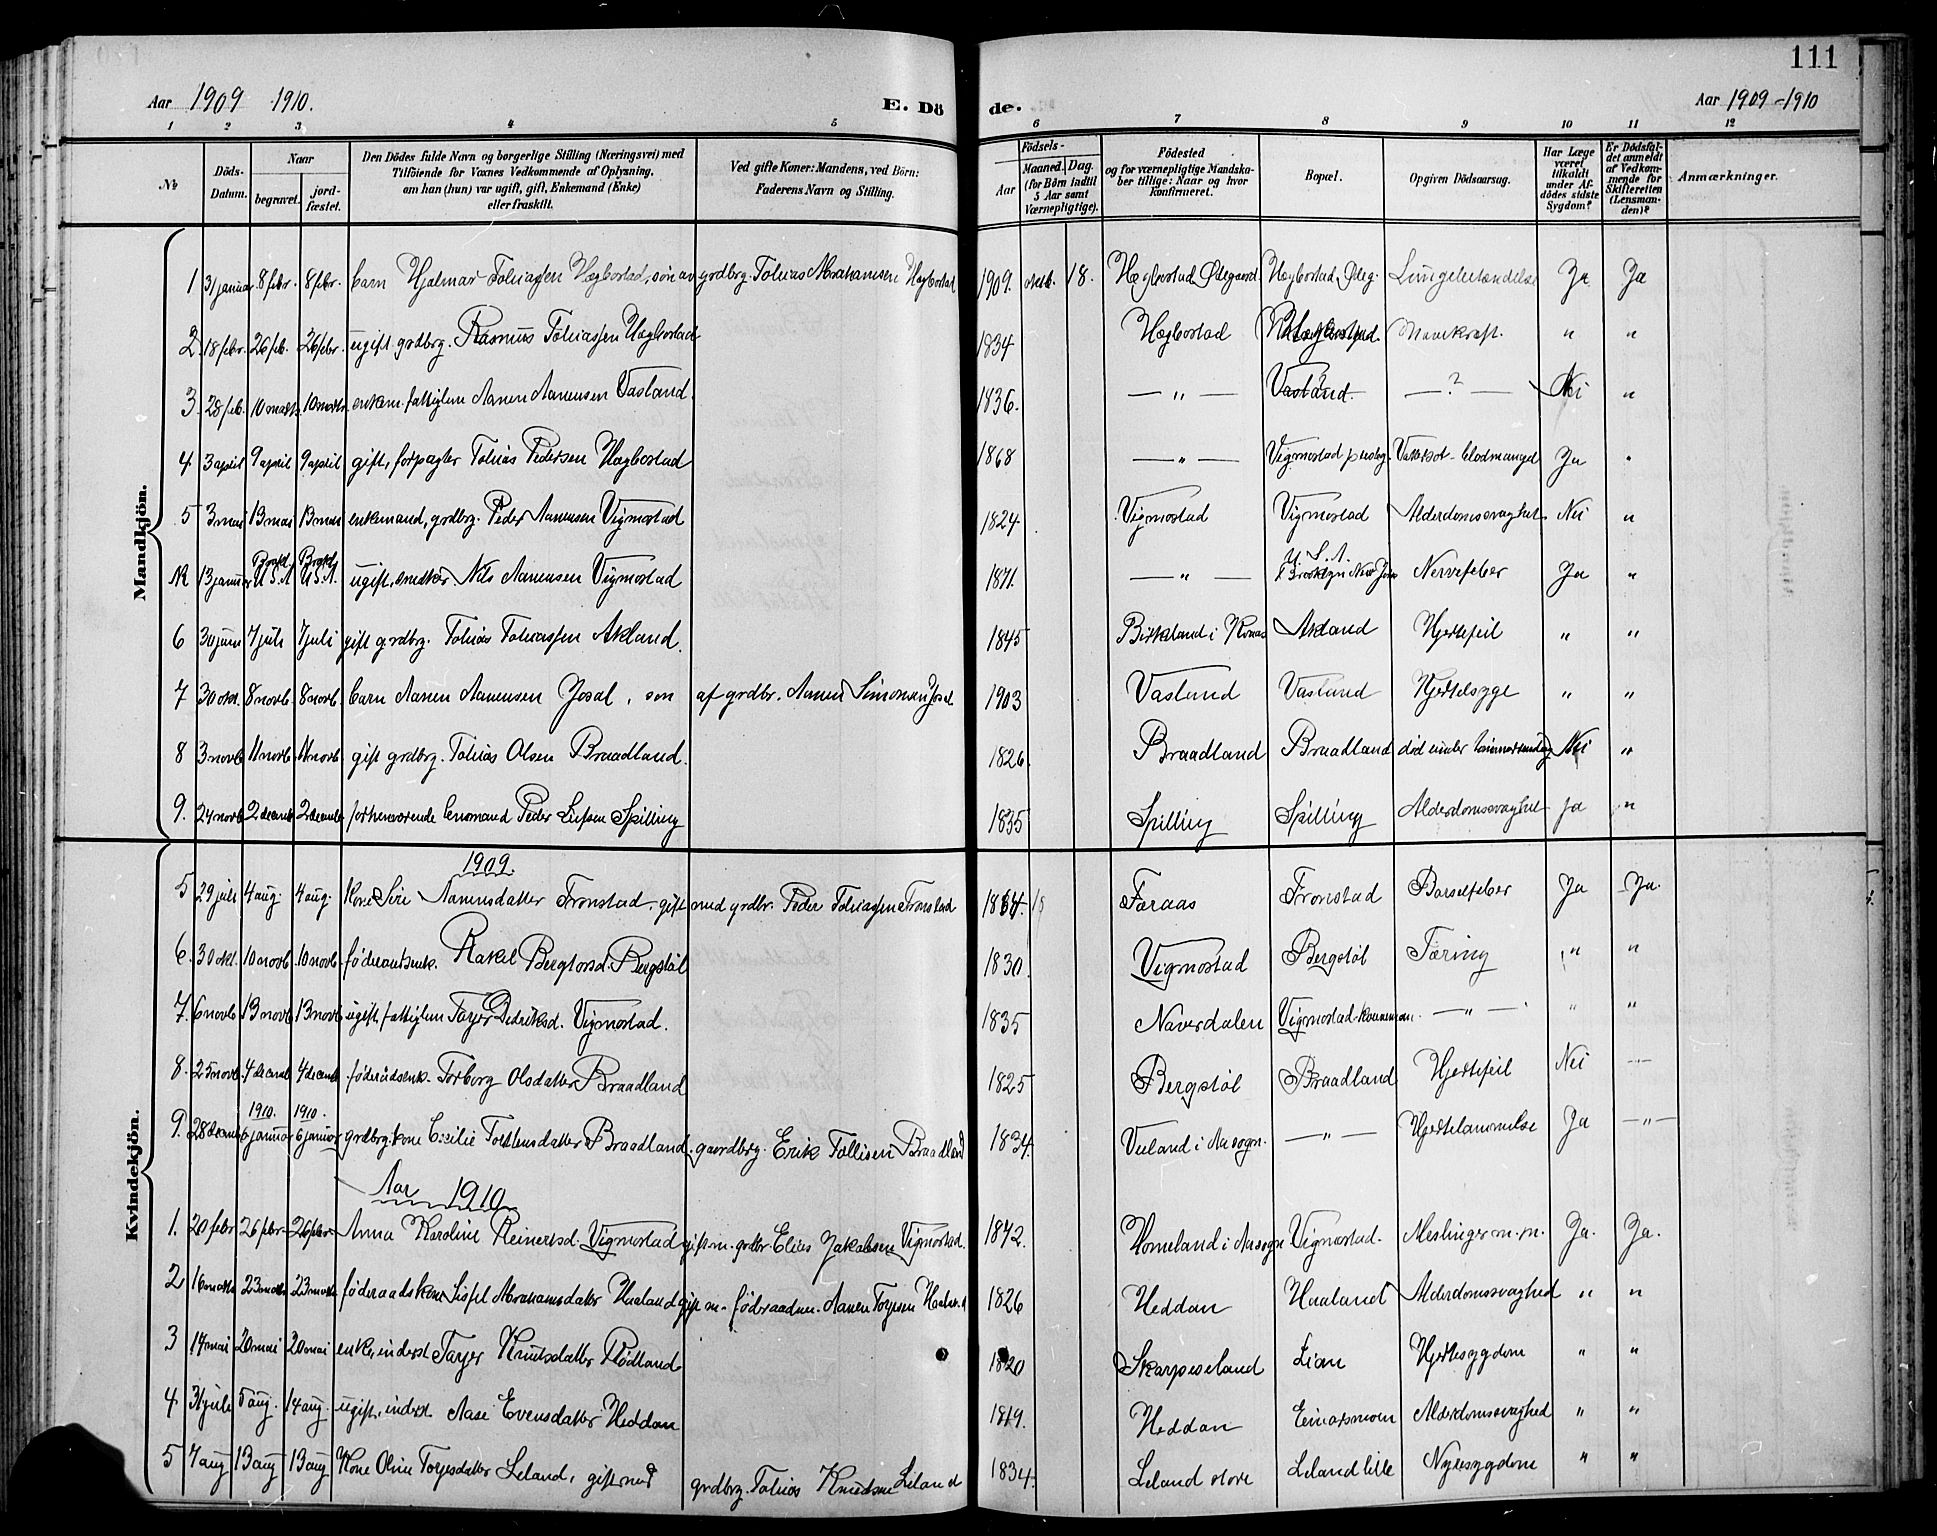 111
Aar 1909 1910.
E. Dö
de.
Aar 1909-1910
1 2 3 4 5 6 7 8 9 10 11 12
№
Döds-Datum.
Naar
begravet.
jord-fæstet.
Den Dödes fulde Navn og borgerlige Stilling (Næringsvei) med
Tilföiende for Voxnes Vedkommende af Oplysning,
om han (hun) var ugift, gift, Enkemand (Enke)
eller fraskilt.
Ved gifte Koner: Mandens, ved Börn:
Faderens Navn og Stilling.
Födsels-
Aar
Maaned. Dag.
(for Börn indtil
5 Aar samt
Værnepligtige).
Födested
og for værnepligtige Mandska-
ber tillige: Naar og hvor
konfirmeret.
Bopæl.
Opgiven Dödsaarsag.
Har Læge
været
tilkaldt
under Af-
dödes sidste
Sygdom?
Er Dödsfal-
det anmeldt
af Vedkom-
mende for
Skifteretten
(Lensman-
den)?
Anmærkninger.
Mandkjön.
1 31 januar 8 febr. 8 febr. barn Hjalmar Tobiassen Hægbostad, søn av grdbrg. Tobias Abrahamsen Hægbostad 1909. oktb. 18. Hægbostad Ødegaard Hægbostad Ødeg. Lungebetændelse Ja Ja
2 18 febr. 26 feb. 26 febr. ugift grdbrg. Rasmus Tobiassen Hægbostad 1834 Hægbostad Hægbostad. Mavekræft. " "
3. 28 feb. 10 marts. 10 marts. enkem. fattiglem Aanen Aanensen Vasland. 1836. — " — Vasland. — ? — Nei "
4 3 april 9 april 9 april gift, forpagter Tobias Pedersen Hægbostad 1868 — " — Vigmostad presteg. Vattersot-blodmangel Ja "
5 3 mai 13 mai 13 mai enkemand, grdbrg. Peder Aanensen Vigmostad 1824 Vigmostad Vigmostad Alderdomssvaghet Nei "
13 januar U.S.A. U.S.A. ugift, snedker Nils Aanensen Vigmostad 1871. — " — U.S.A. Brooklyn New York Nervefeber Ja "
6 30 juni 7 juli 7 juli gift grdbrg. Tobias Tobiassen Akland. 1845 Birkland i Konas Akland Hjertefeil " "
7 30 okt. 8 novb. 8 novb. barn Aanen Aanensen Josal, søn af grdbr. Aanen Simonsen Josal 1903 Vasland Vasland Hjertesyge " "
8 3 novb 11 novb. 11 novb. gift grdbrg. Tobias Olsen Braadland. 1826. Braadland Braadland død under Nei "
9. 24 novb 2 decemb 2 decemb forhenværende lensmand Peder Spilling 1835 Spilling Spilling Alderdomssvaghet Ja "
Kvindekjön.
1909.
5 29 juli 4 aug. 4 aug. Kone Siri Aanensdatter Fronstad, gift med grdbr. Peder Tobiassen Fronstad 1864. Faraas Fronstad Barselfeber Ja Ja.
6. 30 okt. 10 novb. 10 novb. føderaadsenk. Rakel Bergtorsd. Bergstøl 1830. Vigmostad Bergstøl Tæring " "
7. 6 novb 13 novb 13 novb ugift, fattiglem Tarjer Didriksd. Vigmostad. 1835 Naverdalen Vigmostad — " — " "
8. 25 novb. 4 decemb 4 decemb føderaadsenk. Torborg Olsdatter Braadland 1825 Bergstøl Braadland Hjertefeil Nei — " —
9. 28 decemb 1910. 6 januar 1910. 6 januar grdbrg. kone Cicilie Torkelsdatter Braadland. gaardbrg. Erik Tollisen Braadland 1834. Veeland i Aa sogn. — " — Hjertelammelse Ja — " —
Aar 1910
1. 20 febr 26 febr. 26 febr. Anna Karoline Reinertsd. Vigmostad gift m. grdbr. Elias Jakobsen Vigmostad. 1842. Homeland i Aasogn Vigmostad. Meslinger m.m. Ja. Ja.
2 16 marts 23 marts 23 marts føderaadskone Sissel Abrahamsdatter Haaland gift m. føderaadm. Aanen Torjesen Haaland 1826 Heddan Haaland Alderdomssvaghed " "
3 14 mai 20 mai 20 mai enke, inderst Tarjer Knutsdatter Rødland 1820 Skarpeseland Lian Hjertesygdom " "
4 31 juli 5 aug. 14 aug. ugift, inderst Aase Evensdatter Heddan 1819. Heddan Einarsmoen Alderdomssvaghed " "
5 7 aug 13 aug 13 aug Kone Oline Torjesdatter Leland, gift med grdbrg. Tobias Knudsen Leland 1834. Leland store Leland lille Nyresygdom " "